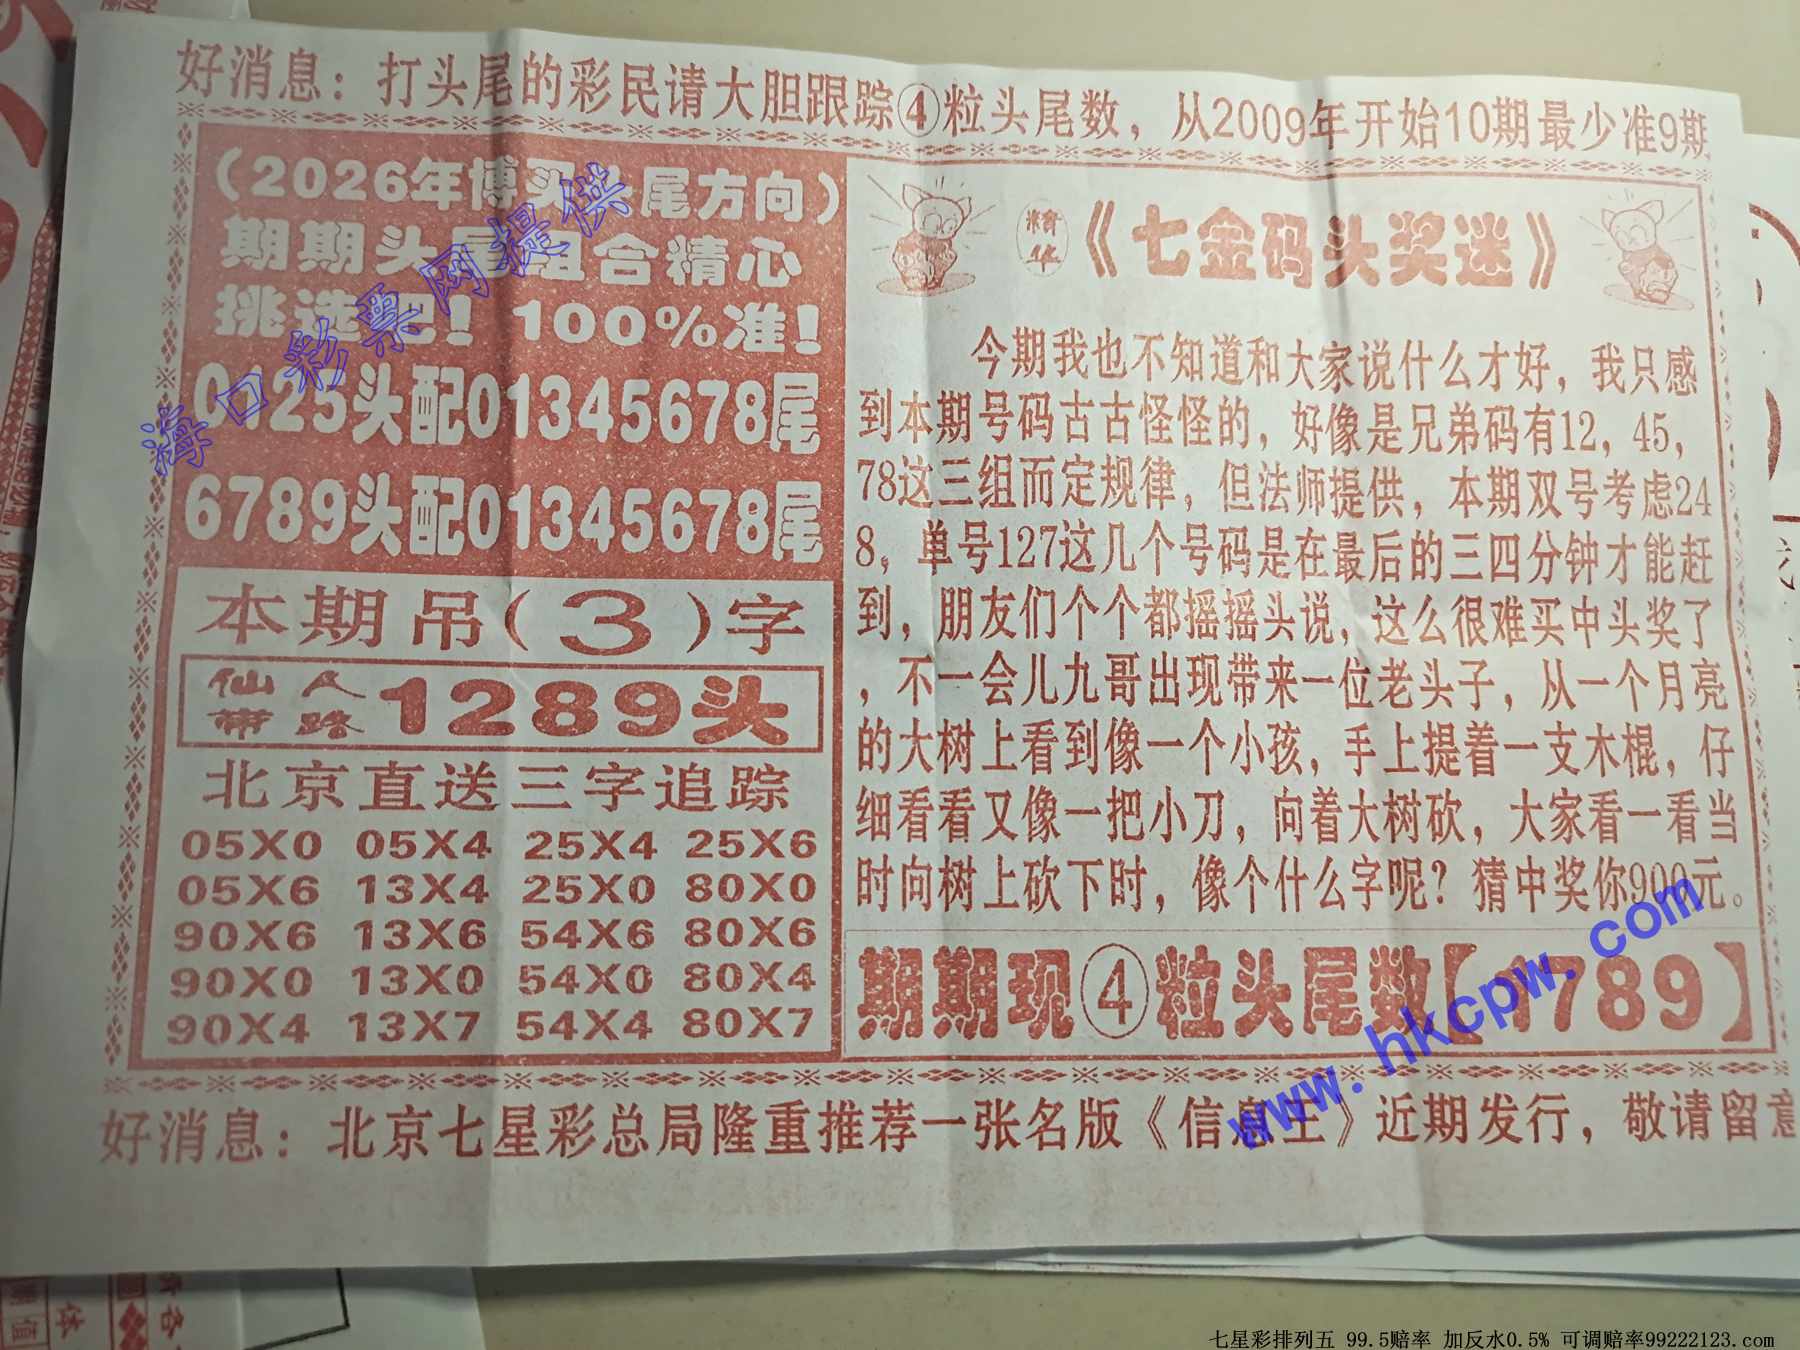 好消息：打头尾的彩民请大胆跟踪④粒头尾数，从2009年开始10期最少准9期
（2026年博买头尾方向）
期期头尾组合精心
挑选吧！100%准！
0125头配01345678尾
6789头配01345678尾
本期吊（3）字
仙人带路 1289头
北京直送三字追踪
05X0 05X4 25X4 25X6
05X6 13X4 25X0 80X0
90X6 13X6 54X6 80X6
90X0 13X0 54X0 80X4
90X4 13X7 54X4 80X7
精华《七金码头奖迷》
今期我也不知道和大家说什么才好，我只感
到本期号码古古怪怪的，好像是兄弟码有12，45，
78这三组而定规律，但法师提供，本期双号考虑24
8，单号127这几个号码是在最后的三四分钟才能赶
到，朋友们个个都摇摇头说，这么很难买中头奖了
，不一会儿九哥出现带来一位老头子，从一个月亮
的大树上看到像一个小孩，手上提着一支木棍，仔
细看看又像一把小刀，向着大树砍，大家看一看当
时向树上砍下时，像个什么字呢？猜中奖你900元。
期期现④粒头尾数【1789】
好消息：北京七星彩总局隆重推荐一张名版《信息王》近期发行，敬请留意
海口彩票网提供
www.hkcpw.com
七星彩排列五 99.5赔率 加反水0.5% 可调赔率99222123.com